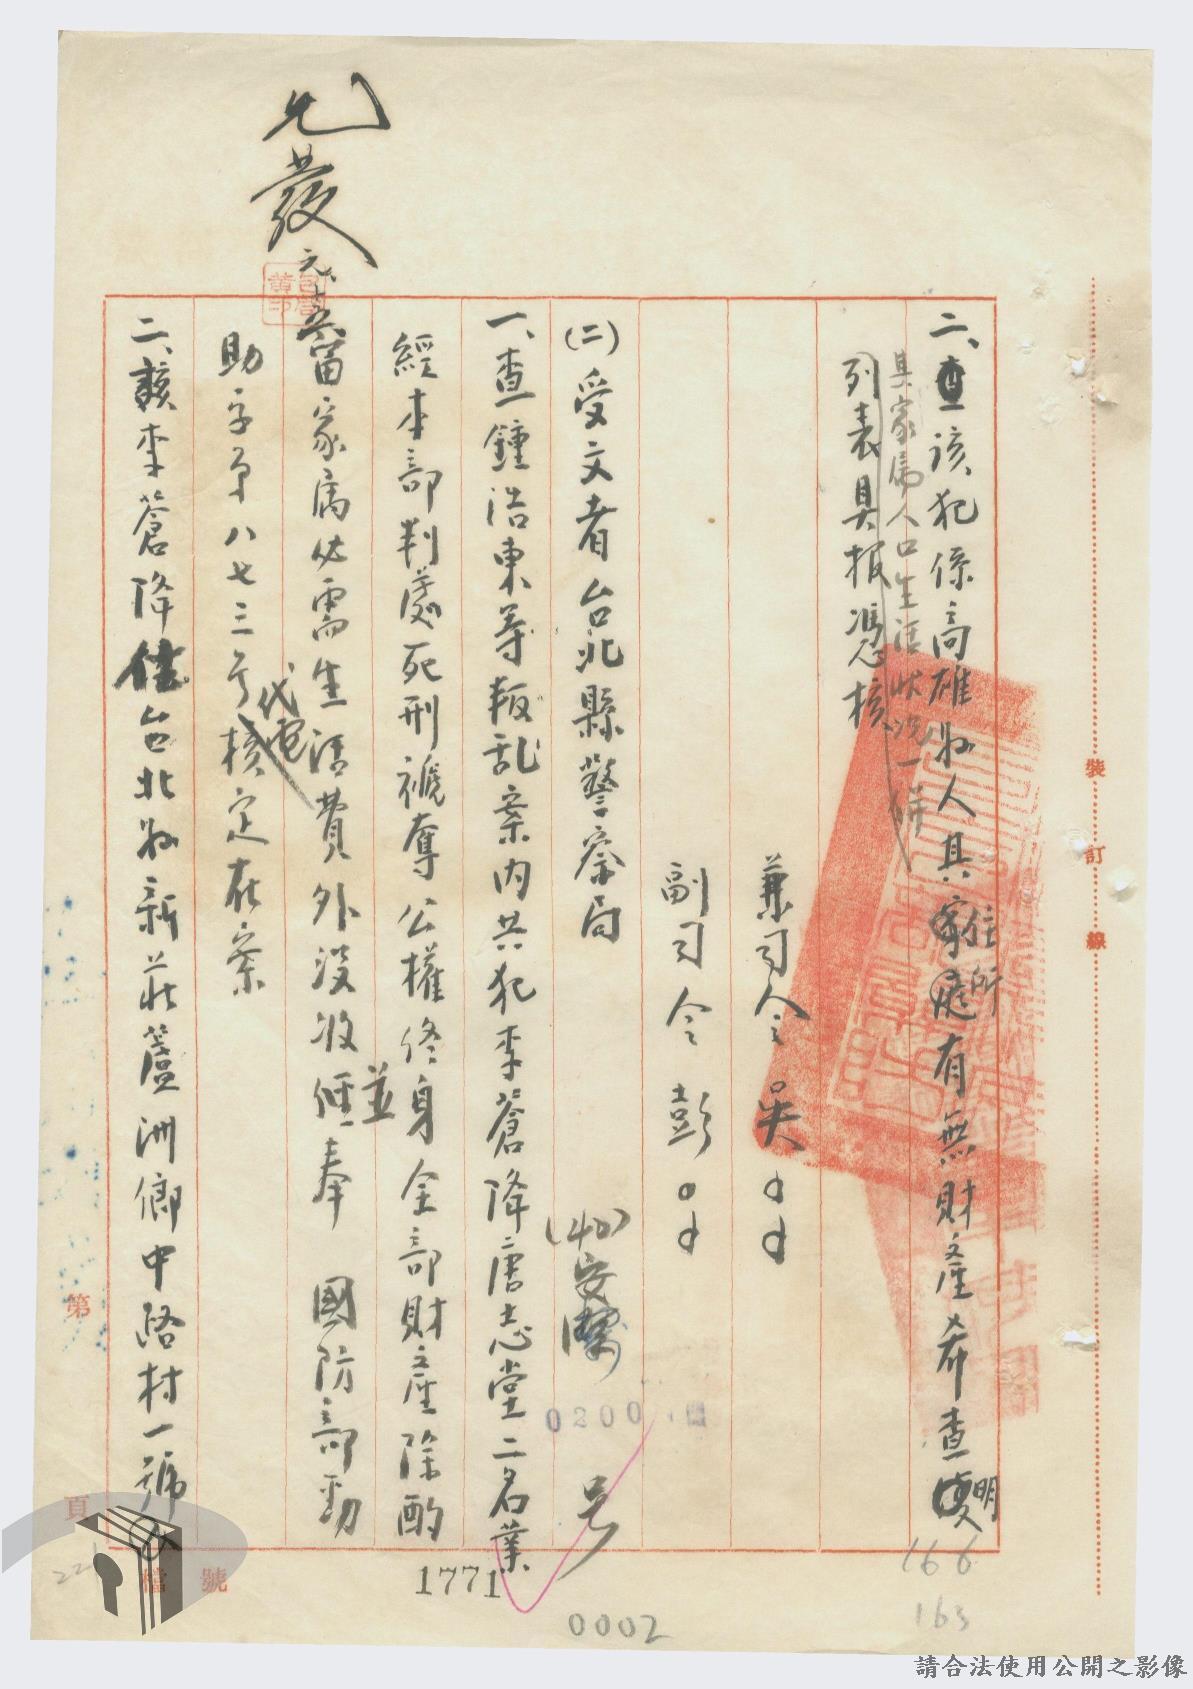 二、查該犯係高雄縣人其住所有無財產希查明
其家屬人口生活狀況一併
列表具报憑核
兼司令 吳
副司令 彭
(二)受文者台北縣警察局
(40)安潔
0200
号
一、查鍾浩東等叛乱案内共犯李蒼降唐志堂二名業
經本部判處死刑褫奪公權終身全部財產除酌
並
留家属必需生活費外没收經奉 國防部勁
助字第八七三号代電核定在案
二、該李蒼降住台北縣新莊蘆洲鄉中路村一號
允發
裝
訂
線
第
頁
檔 號
221
1771
0002
166
163
請合法使用公開之影像